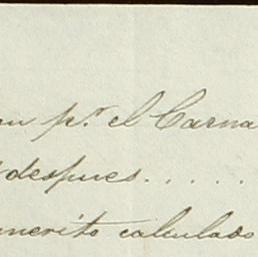 pr. el Carna
despues.....
merito calculado